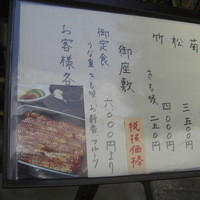 菊 三五〇〇
松 四〇〇〇
竹 きも吸 二五〇
税抜価格
御座敷
御定食 六〇〇〇円より
うな重 きも吸 お新香 フルーツ
お客様各